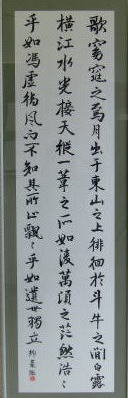 歌窈窕之焉月出于東山之上徘徊於斗牛之間白露
橫江水光接天縱一葦之所如凌萬頃之茫然浩〻
乎如馮虛御風而不知其所止飄〻乎如遺世獨立